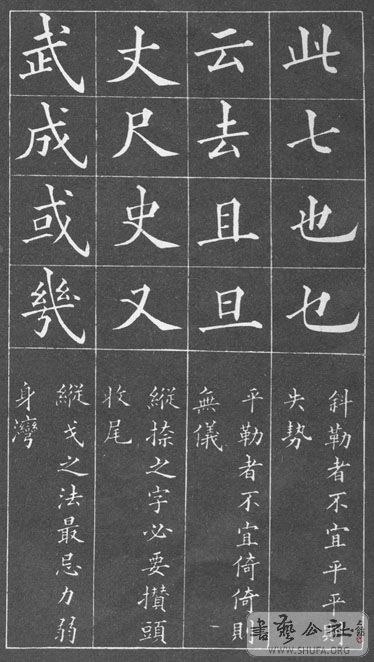 此七也乜
斜勒者不宜平平則
失勢
云去且旦
平勒者不宜倚倚則
無儀
丈尺史又
縱捺之字必要攢頭
收尾
武成或幾
縱戈之法最忌力弱
身灣
書藝公社
WWW.SHUFA.ORG